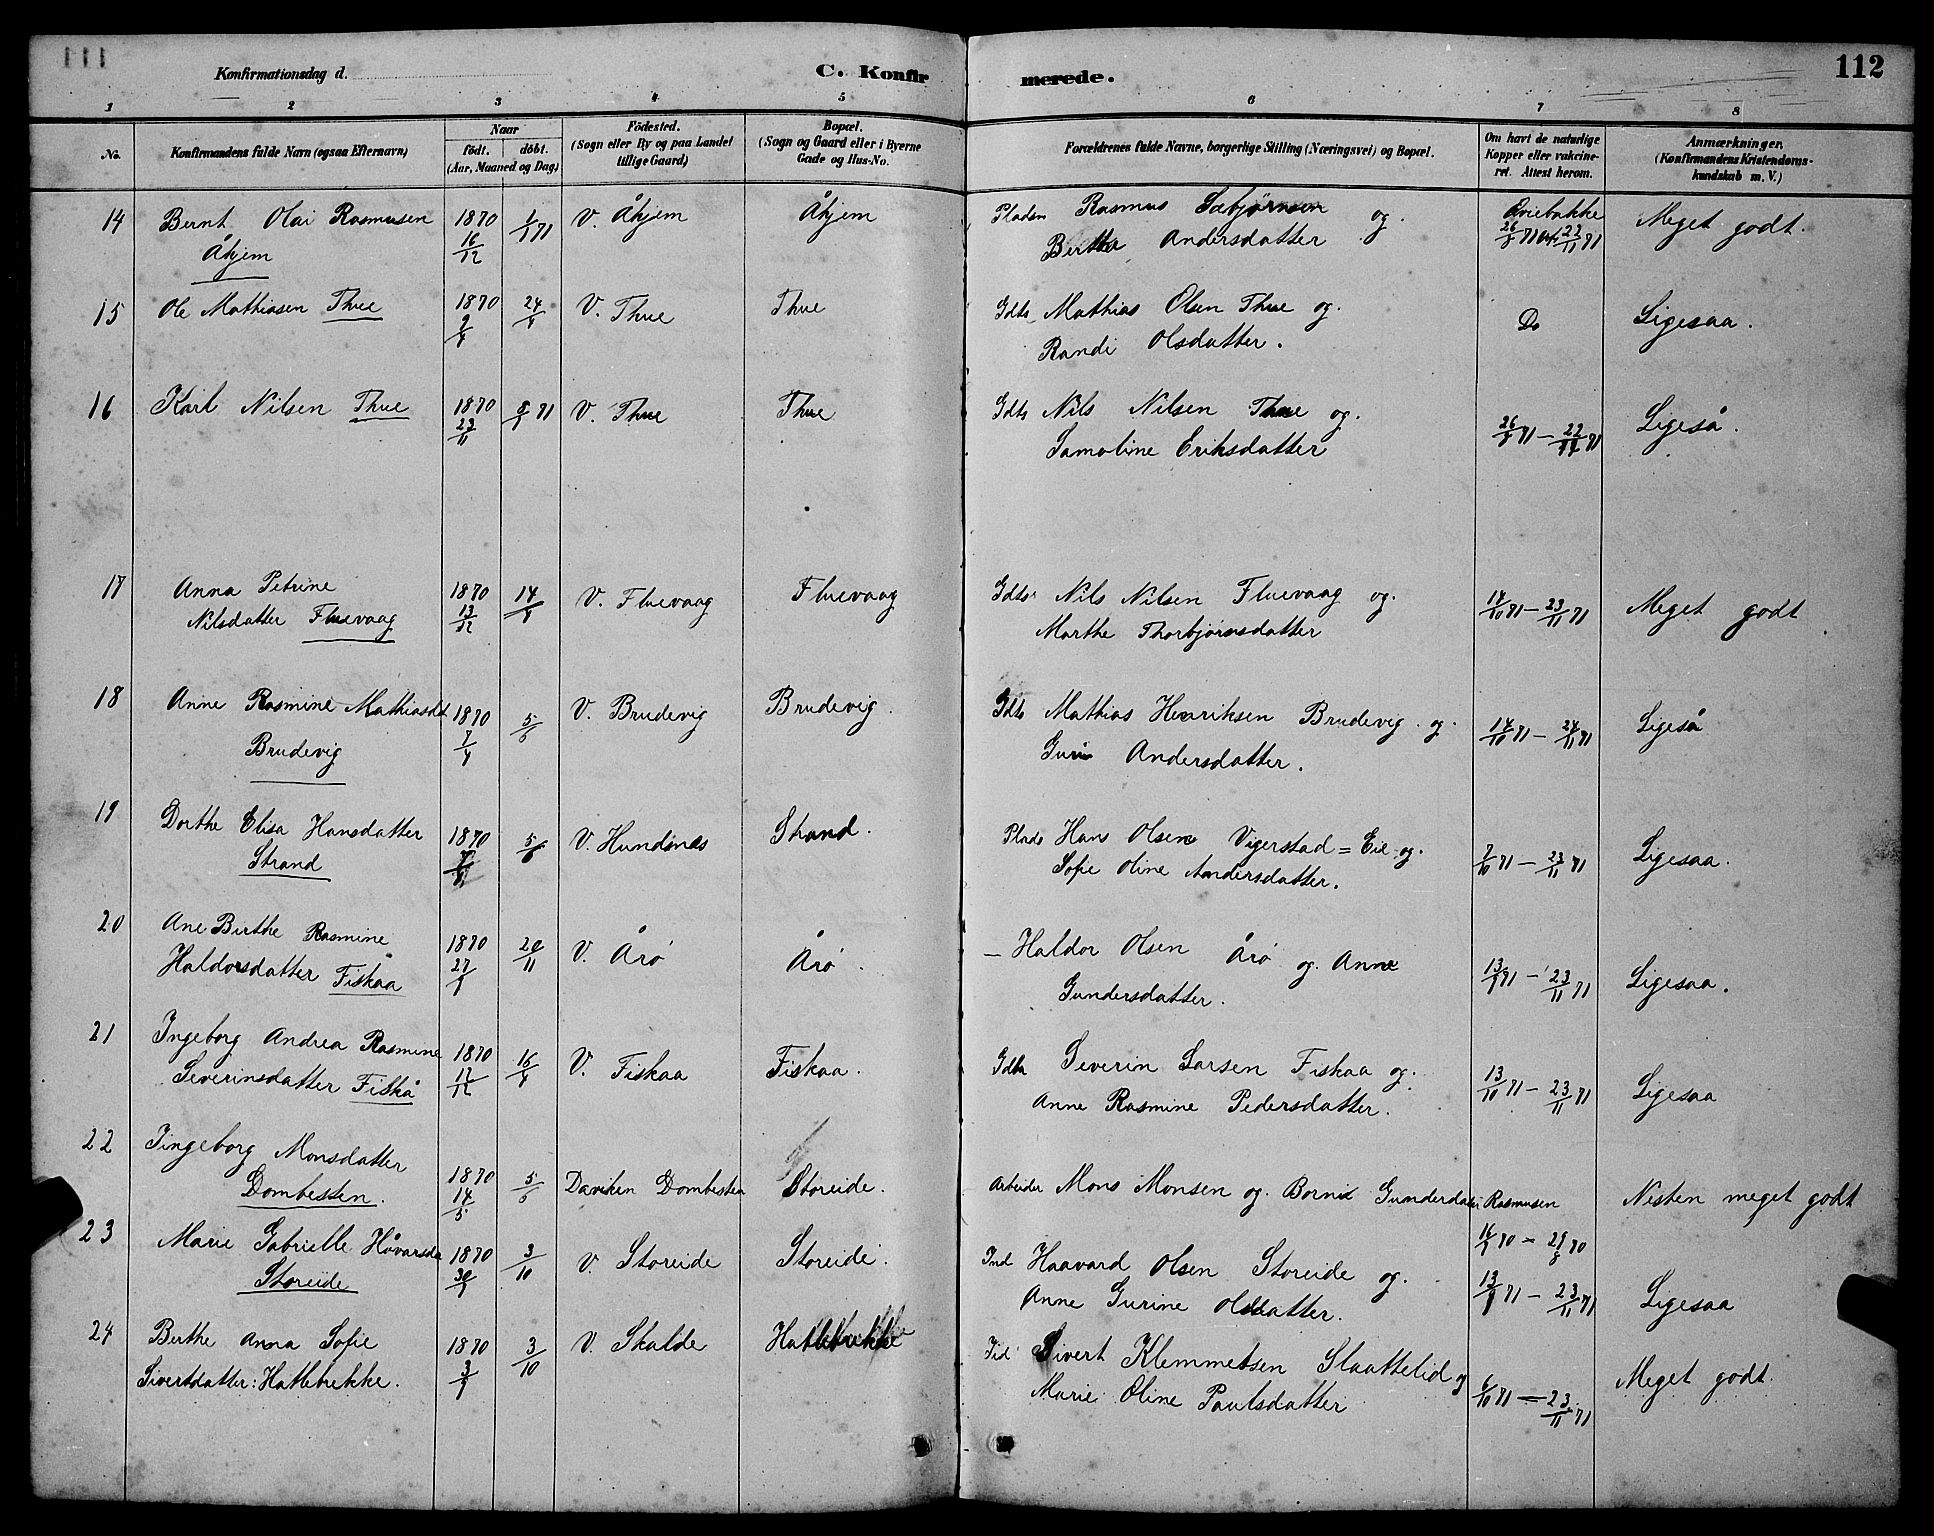 111
112
Konfirmationsdag d.
C. Konfirmerede.
1 2 3 4 5 6 7 8
No.
Konfirmandens fulde Navn (ogsaa Efternavn)
Naar
födt. döbt.
(Aar, Maaned og Dag)
Födested.
(Sogn eller By og paa Landet
tillige Gaard)
Bopæl.
(Sogn og Gaard eller i Byerne
Gade og Hus-No.
Forældrenes fulde Navne, borgerlige Stilling (Næringsvei) og Bopæl.
Om havt de naturlige
Kopper eller vakcine-
ret. Attest herom.
Anmærkninger,
(Konfirmandens Kristendoms-
kundskab m. V.)
14 Bernt Olai Rasmusen 1870 1/1 71 V. Åhjem Åhjem Pladsm Rasmus Sæbjørnsen og. Øriebakke Meget godt.
Åhjem 16/12 Bertha Andersdatter 26/8 71 22/11 71
15 Ole Mathiasen Thue 1870 24/4 V. Thue Thue Gdbs Mathias Olsen Thue og. Do Ligesaa.
Randi Olsdatter.
16 Karl Nilsen Thue 1870 8/1 71 V. Thue Thue Gdbs Nils Nilsen Thue og. Ligeså.
23/11 Samoline Eriksdatter 26/8 71 - 22/11 71
17 Anna Petrine 1870 14/4 V. Fluevaag Fluevaag Gdbs Nils Nilsen Fluevaag og. 14/10 71 - 23/11 71 Meget godt
Nilsdatter Fluevaag 13/12 Marthe Thorbjørnsdatter
18 Anne Rasmine Mathiasdt 1870 5/6 V. Brudevig Brudevig. Gdbs Mathias Henriksen Brudevig. og. 14/10 71 - 24/11 71 Ligeså
Brudevig 7/4 Guri Andersdatter.
19 Dorthe Elisa Hansdatter 1870 5/6 V. Hundsnes Strand. Plads Hans Olsen Vigerstad = Eie og. 7/10 71 - 23/11 71 Ligesaa.
Strand Sofie Oline Andersdatter.
20 Ane Birthe Rasmine 1870 20/11 V. Årö Årö. - Haldor Olsen Årö og. Anne 13/9 71 - 23/11 71 Ligesaa.
Haldorsdatter Fiskaa 27/9 Gundersdatter.
21 Ingeborg Andrea Rasmine 1870 16/4 V. Fiskaa Fiskaa. Gdbr Severin Larsen Fiskaa og. 13/10 71 - 23/11 71 Ligesaa
Severinsdatter Fiskå 17/12 Anne Rasmine Pedersdatter.
22 Jingeborg Monsdatter 1870 5/6 Daviken Dombesten Storeide. Arbeider Mons Monsen og. Bornie Gunderdatter Rasmusen Nesten meget godt
Dombesten. 14/5 16/9 70 - 29/8 70
23 Marie Gabrielle Håvarsda 1870 3/10 V. Storeide Storeide. Ind Haavard Olsen Storeide og. 13/9 71 - 23/11 71 Ligesaa
Storeide 30/9 Anne Gurine Olsdatter.
24 Birthe Anna Sofie 1870 3/10 V. Skalde Hatlebrekke Ind Sivert Klemmetsen Slaattelid og Meget godt.
Sivertsdatter: Hatlebrekke. 3/9 Marie Oline Paulsdatter 6/10 71 - 23/11 71